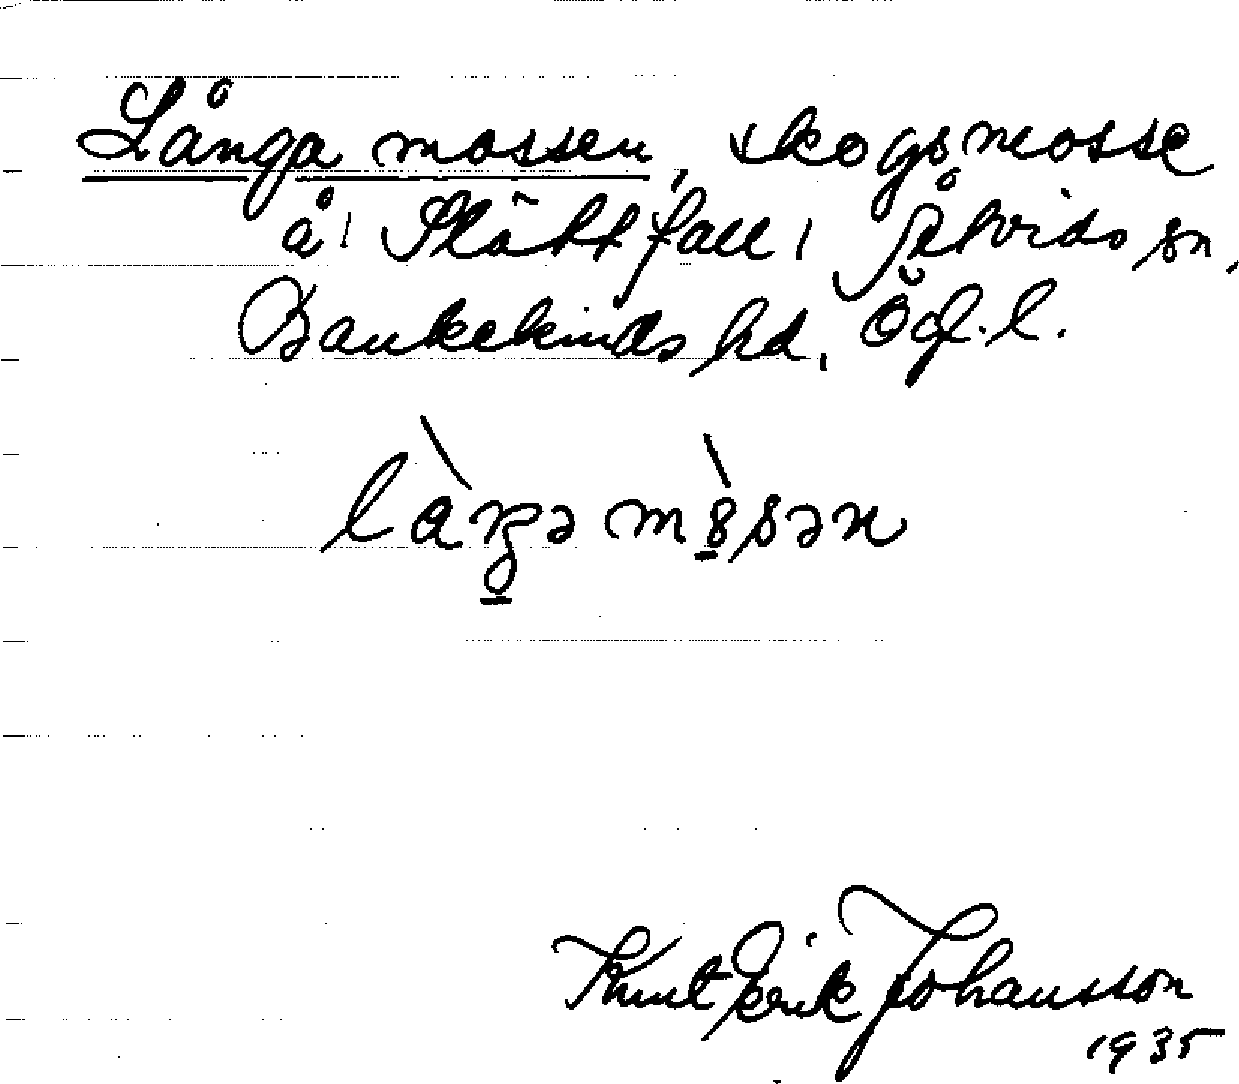 Långa mossen, skogsmosse
å Slättfall i Åtvids sn,
Bankekinds hd, Ög. l.
Knut Erik Johansson
1935